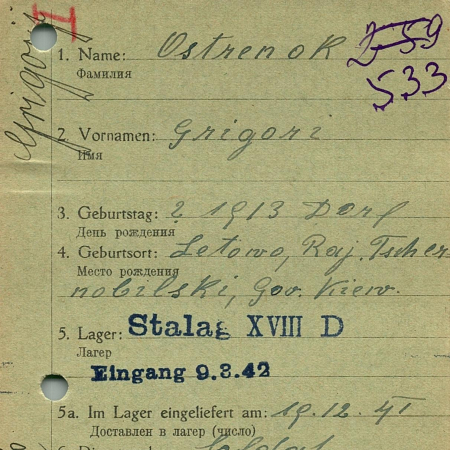 I
Grigori
1. Name: Ostrenok
Фамилия
I 59
533
2. Vornamen: Grigori
Имя
3. Geburtstag: ? 1913 Dorf
День рождения
4. Geburtsort: Letowo, Raj. Tscher
Место рождения
nobilski, Gov. Kiew.
5. Lager: Stalag XVIII D
Лагер
Eingang 9.8.42
5a. Im Lager eingeliefert am: 19.12.41
Доставлен в лагер (число)
Soldat